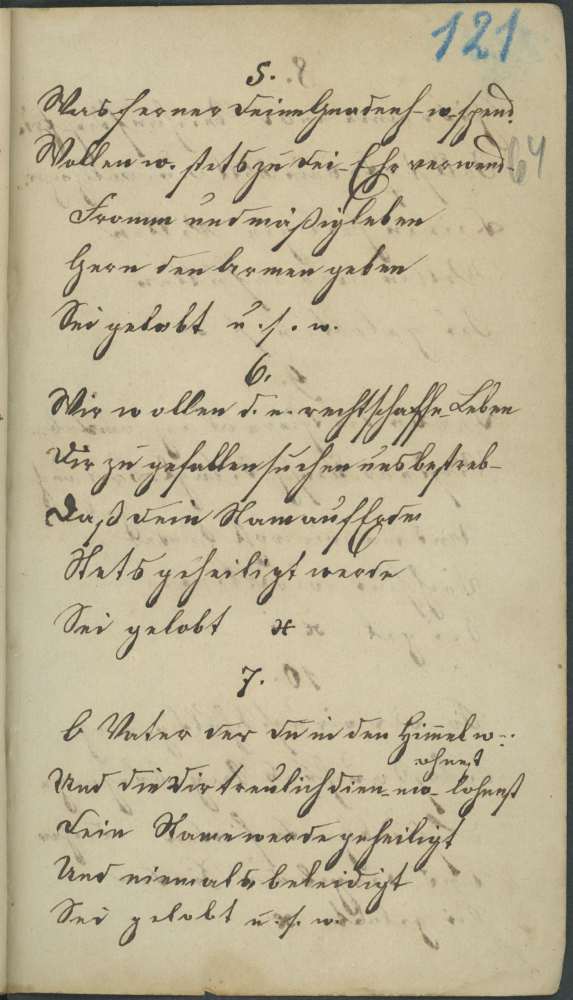 121
5.
Was ferner deine Gnadenh- w. spend.
64
Wollen w. stets zu dei- Ehr verwend-
Fromm und mäßig leben
Gern den Armen geben
Sei gelobt u. s. w.
6.
Wir wollen d. e. rechtschaffn- Leben
Dir zu gefallen suchen uns bestreb-
Daß dein Nam auf Erden
Stets geheiligt werde
Sei gelobt
7.
O Vater der du in den Himeln w-
ohnest
Und die dir treulich dien- lohnest
Dein Name werde geheiligt
Und niemals beleidigt
Sei gelobt u. s. w.